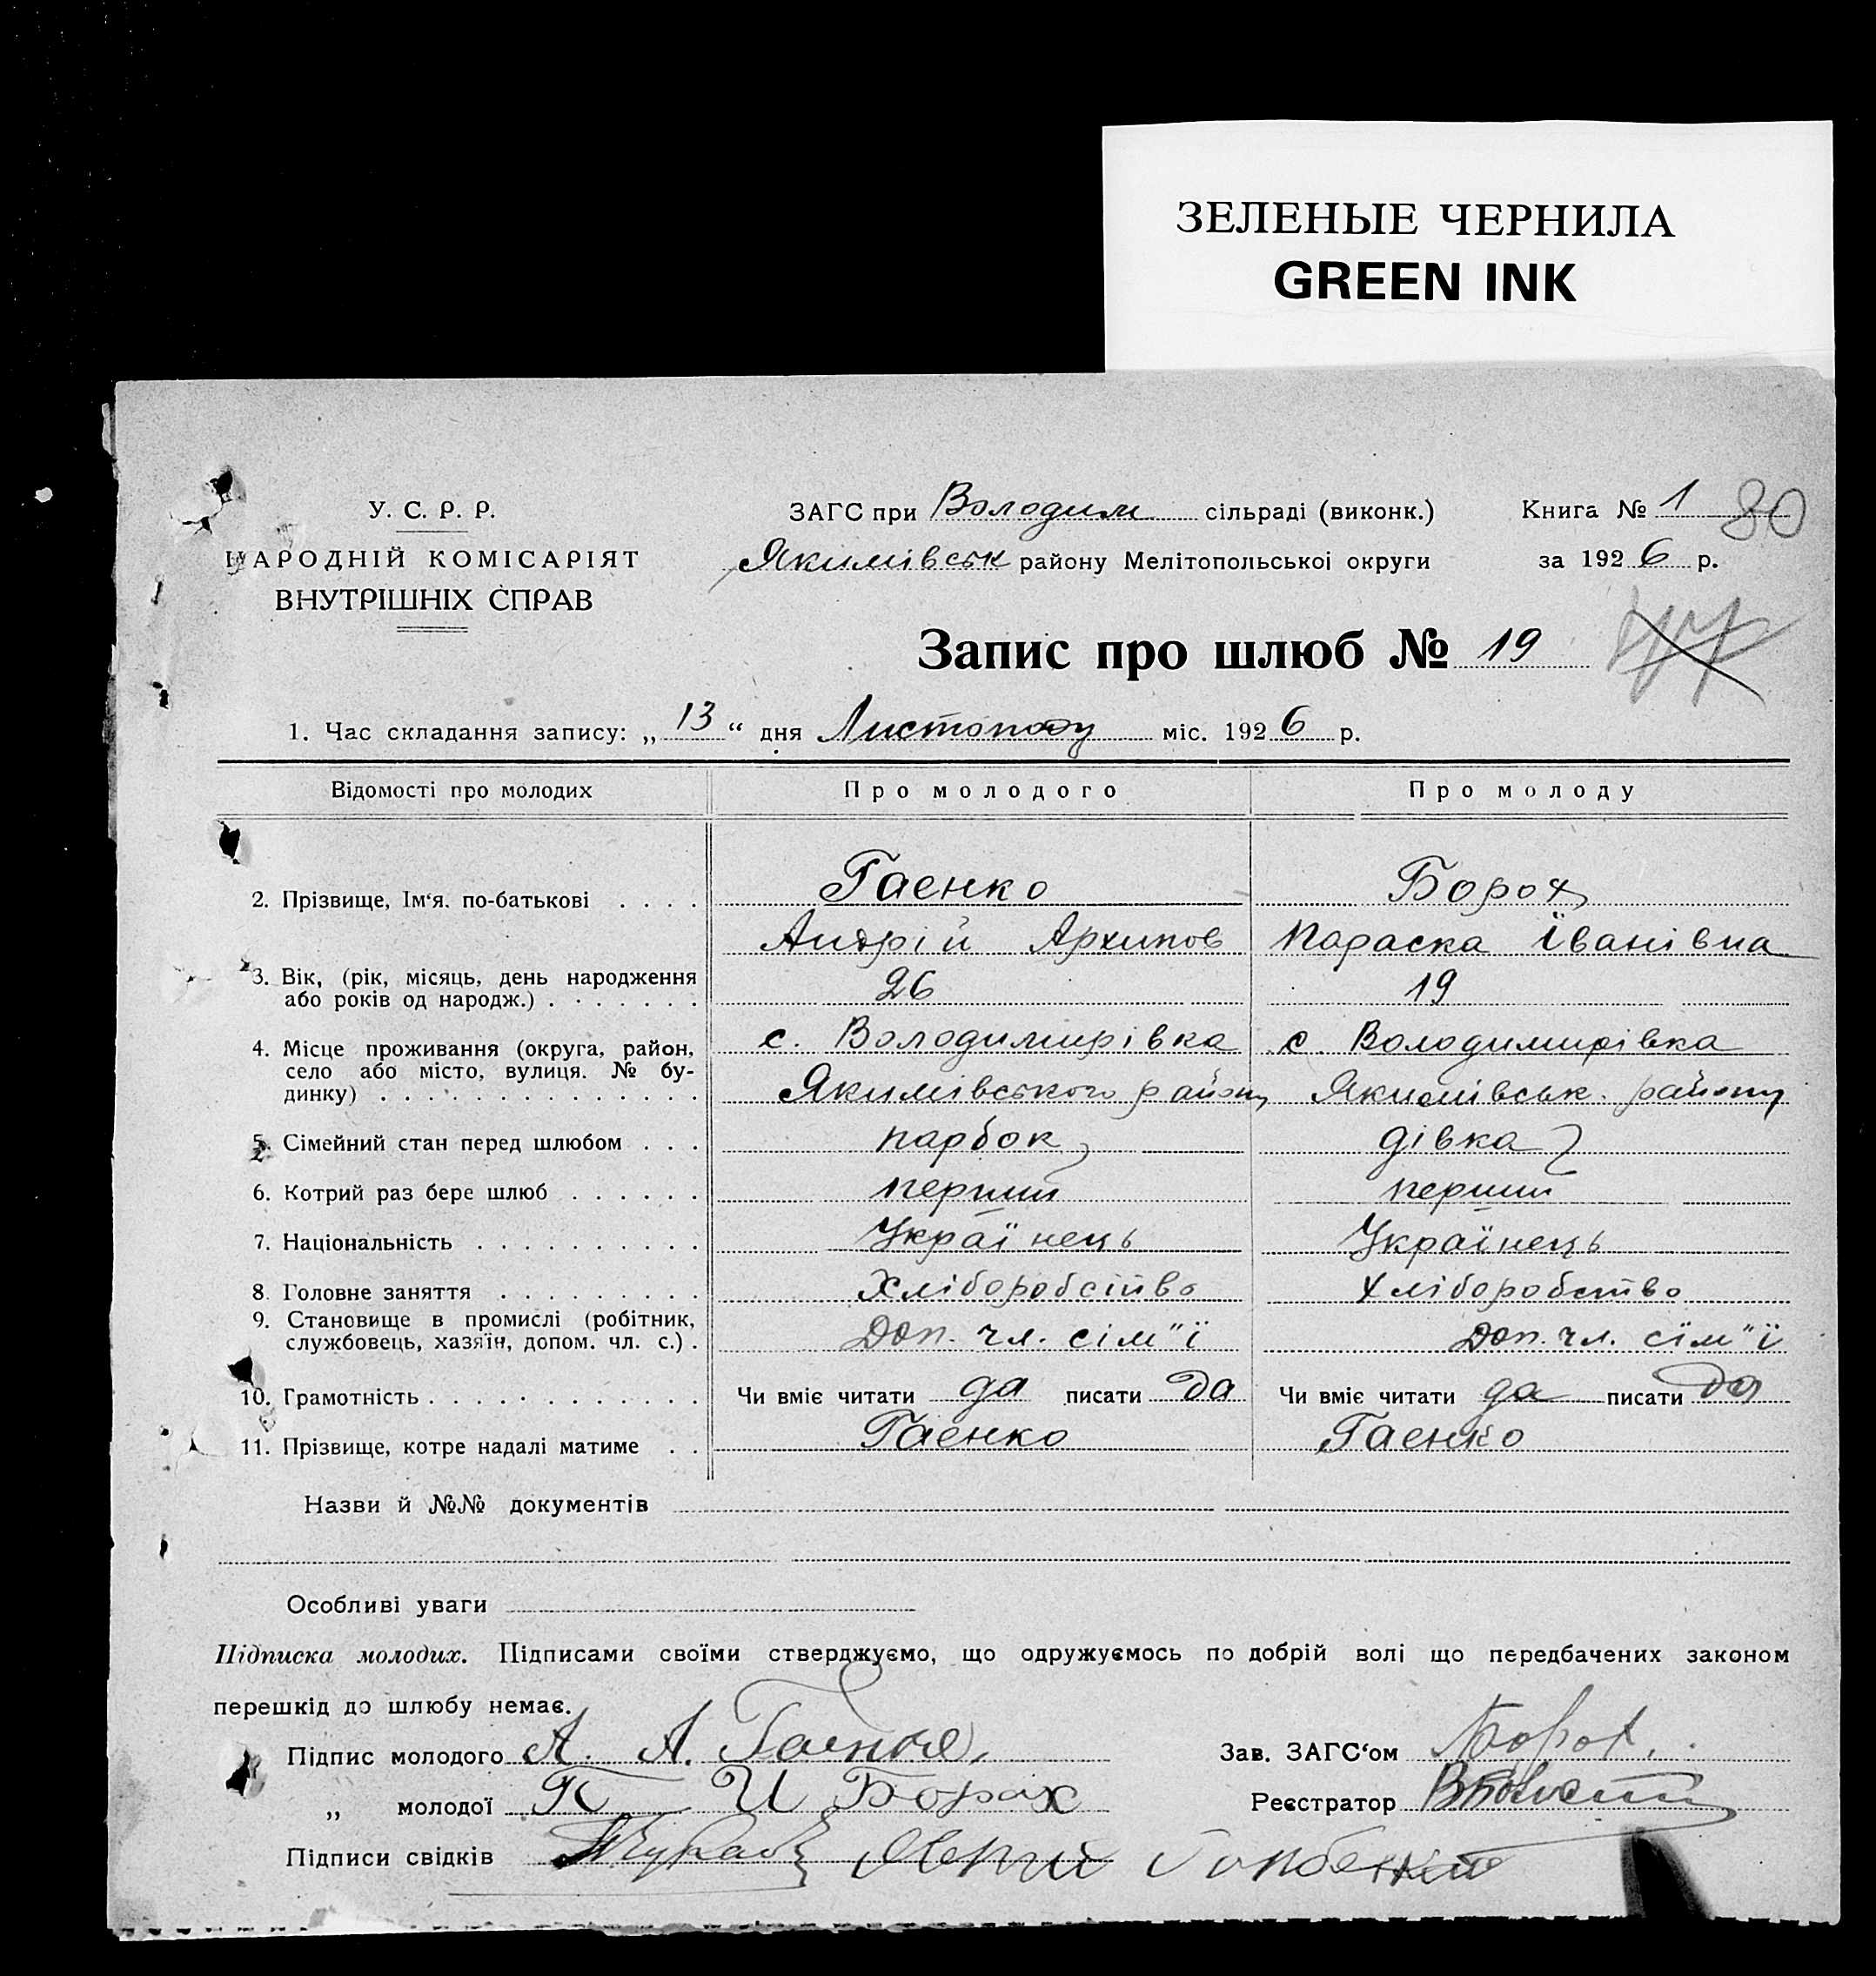 ЗЕЛЕНЫЕ ЧЕРНИЛА
GREEN INK
У. С. Р. Р.
НАРОДНІЙ КОМІСАРІЯТ
ВНУТРІШНІХ СПРАВ
ЗАГС при Володим сільраді (виконк.)
Якимівськ району Мелітопольської округи
Книга № 1 80
за 1926 р.
Запис про шлюб № 19
1. Час складання запису: „13“ дня Листопаду міс. 1926 р.
Відомості про молодих Про молодого Про молоду
2. Прізвище, Ім‘я. по-батькові . . . . Гаенко Борох
Андрій Архипов Параска Іванівна
3. Вік, (рік, місяць, день народження
або років од народж.) . . . . . . . 26 19
4. Місце проживання (округа, район, с. Володимирівка с. Володимирівка
село або місто, вулиця. № бу-
динку) . . . . . . . . . . . . . . Якимівського району Якимівськ. району
5. Сімейний стан перед шлюбом . . . парбок дівка
6. Котрий раз бере шлюб . . . . . . перший перший
7. Національність . . . . . . . . . . Українець Українець
8. Головне заняття . . . . . . . . . Хліборобство Хліборобство
9. Становище в промислі (робітник,
службовець, хазяїн, допом. чл. с.) . Доп. чл. сім"ї Доп. чл. сїм"ї
10. Грамотність . . . . . . . . . . . . Чи вміє читати да писати да Чи вміє читати да писати да
11. Прізвище, котре надалі матиме . . Гаенко Гаенко
Назви й №№ документів
Особливі уваги
Підписка молодих. Підписами своїми стверджуємо, що одружуємось по добрій волі що передбачених законом
перешкід до шлюбу немає.
Підпис молодого А. А. Гаенко Зав. ЗАГС‘ом Борох.
„ молодої П И Борах Реєстратор
Підписи свідків